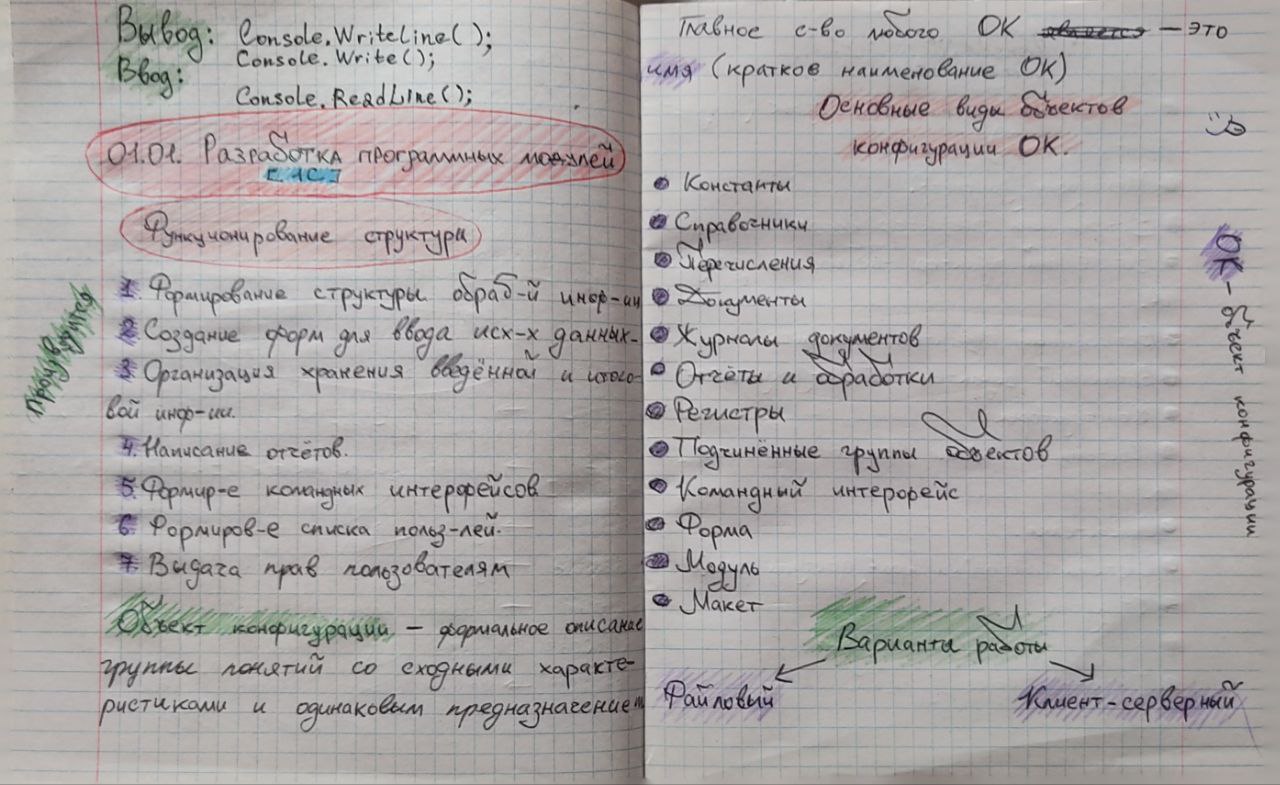 Вывод: Console.WriteLine( );
Console.Write( );
Ввод:
Console.ReadLine( );
01.01. Разработка программных модулей
1С
Функционирование структуры
Производится
1. Формирование структуры обраб-й инф-ии
2. Создание форм для ввода исх-х данных.
3. Организация хранения введённой и итого-
вой инф-ии.
4. Написание отчётов.
5. Формир-е командных интерфейсов
6. Формиров-е списка польз-лей.
7. Выдача прав пользователям
Объект конфигурации – формальное описание
группы понятий со сходными характе-
ристиками и одинаковым предназначением
Главное с-во любого ОК – это
имя (кратков наименование ОК)
Основные виды объектов
конфигурации ОК.
• Константы
• Справочники
• Перечисления
• Документы
• Журналы документов
• Отчёты и обработки
• Регистры
• Подчинённые группы объектов
• Командный интерфейс
• Форма
• Модуль
• Макет
Варианты работы
Файловый Клиент-серверный
ОК – объект конфигурации